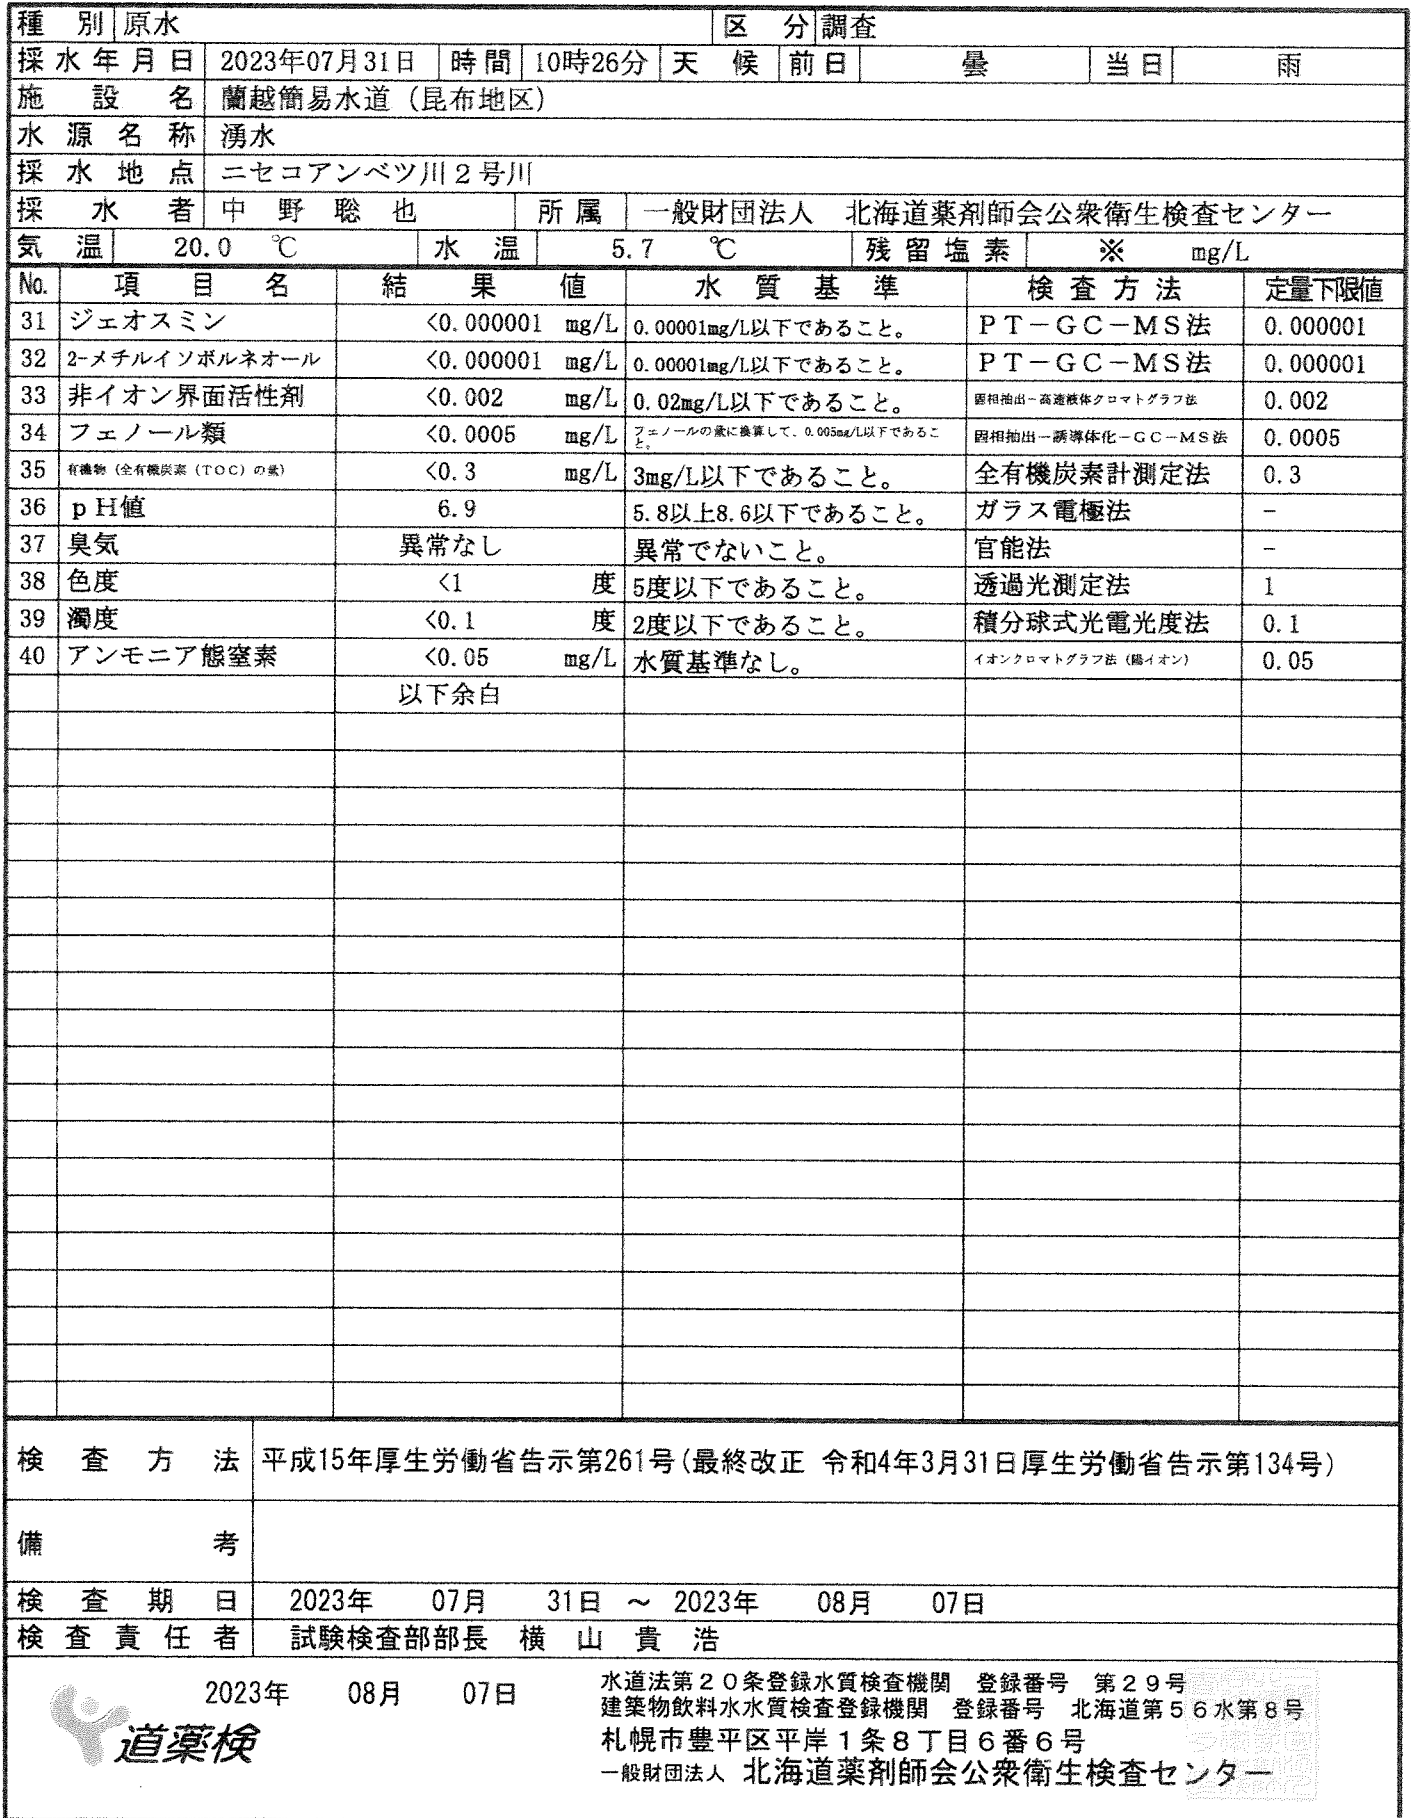 種 別 原水 区 分 調査
採水年月日 2023年07月31日 時間 10時26分 天 候 前日 曇 当日 雨
施 設 名 蘭越簡易水道（昆布地区）
水 源 名 称 湧水
採 水 地 点 ニセコアンベツ川２号川
採 水 者 中 野 聡 也 所属 一般財団法人 北海道薬剤師会公衆衛生検査センター
気 温 20.0 ℃ 水 温 5.7 ℃ 残留塩素 ※ mg/L
No. 項 目 名 結 果 値 水 質 基 準 検査方法 定量下限値
31 ジェオスミン <0.000001 mg/L 0.00001mg/L以下であること。 ＰＴ－ＧＣ－ＭＳ法 0.000001
32 2-メチルイソボルネオール <0.000001 mg/L 0.00001mg/L以下であること。 ＰＴ－ＧＣ－ＭＳ法 0.000001
33 非イオン界面活性剤 <0.002 mg/L 0.02mg/L以下であること。 固相抽出－高速液体クロマトグラフ法 0.002
34 フェノール類 <0.0005 mg/L フェノールの量に換算して、0.005mg/L以下であること。 固相抽出－誘導体化－ＧＣ－ＭＳ法 0.0005
35 有機物（全有機炭素（ＴＯＣ）の量） <0.3 mg/L 3mg/L以下であること。 全有機炭素計測定法 0.3
36 ｐＨ値 6.9 5.8以上8.6以下であること。 ガラス電極法 －
37 臭気 異常なし 異常でないこと。 官能法 －
38 色度 <1 度 5度以下であること。 透過光測定法 1
39 濁度 <0.1 度 2度以下であること。 積分球式光電光度法 0.1
40 アンモニア態窒素 <0.05 mg/L 水質基準なし。 イオンクロマトグラフ法（陽イオン） 0.05
以下余白
検 査 方 法 平成15年厚生労働省告示第261号(最終改正 令和4年3月31日厚生労働省告示第134号)
備 考
検 査 期 日 2023年 07月 31日 ～ 2023年 08月 07日
検査責任者 試験検査部部長 横 山 貴 浩
2023年 08月 07日
道薬検
水道法第２０条登録水質検査機関 登録番号 第２９号
建築物飲料水水質検査登録機関 登録番号 北海道第５６水第８号
札幌市豊平区平岸１条８丁目６番６号
一般財団法人 北海道薬剤師会公衆衛生検査センター